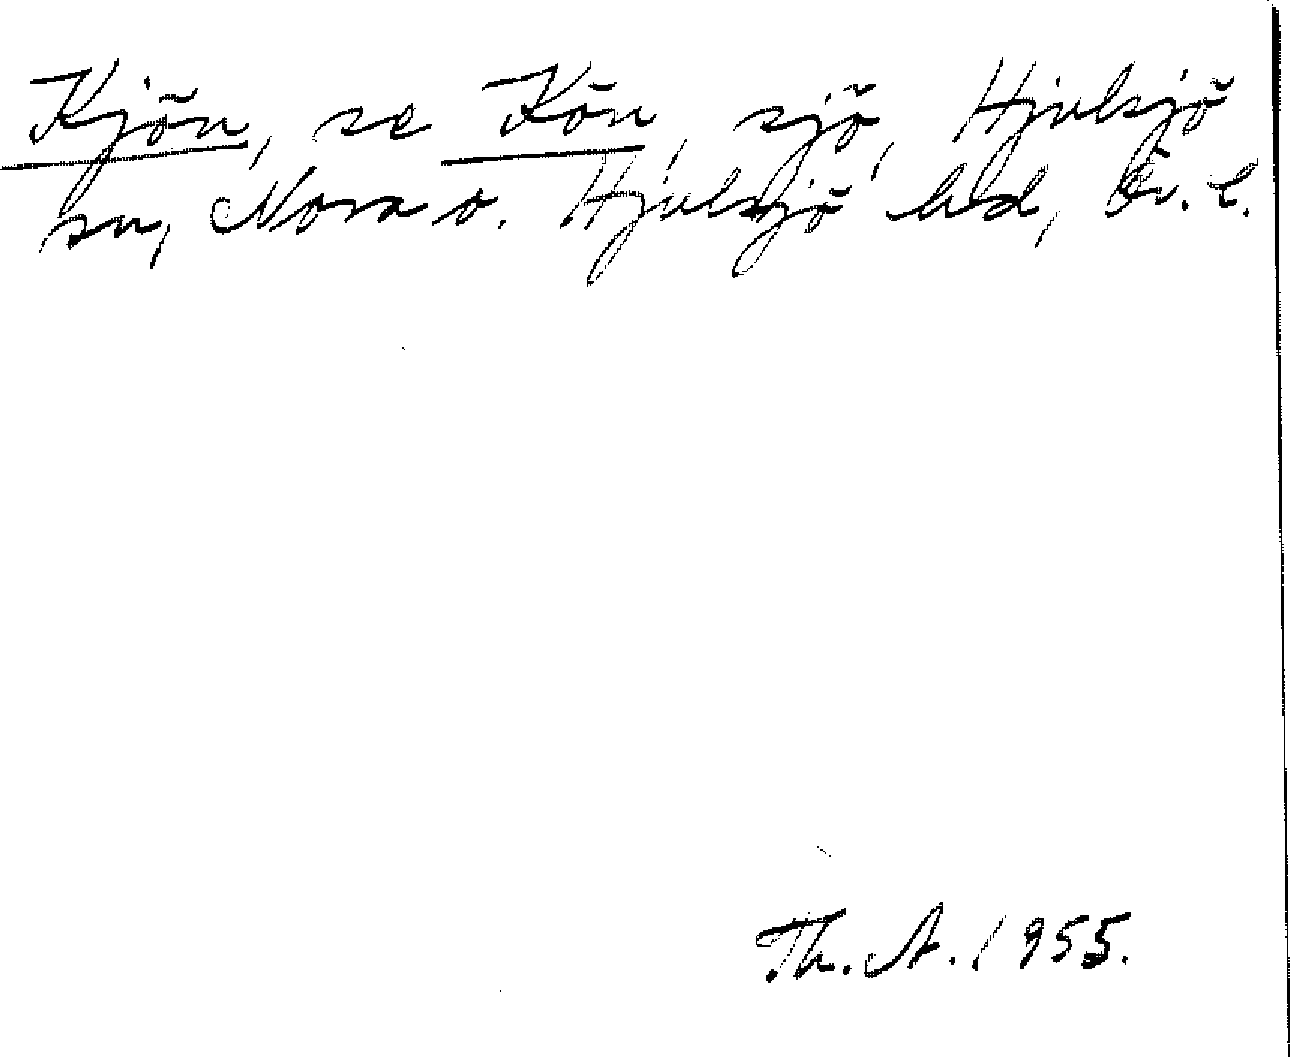 Kjön, se Kön, sjö, Hjulsjö
sn, Nora o. Hjulsjö bd, Ör. l.
Th. A. 1955.